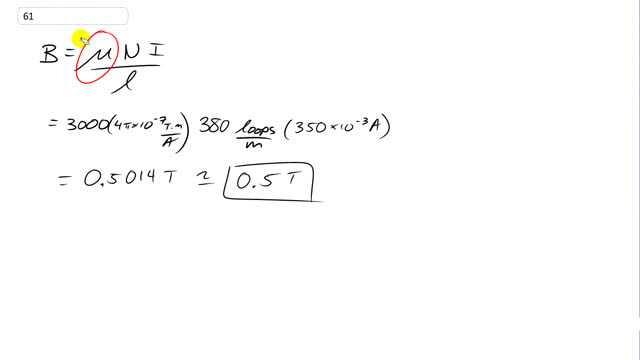 61
B = μ N I / l
= 3000 (4π×10⁻⁷ T.m/A) 380 loops/m (350 × 10⁻³ A)
= 0.5014 T ≃ 0.5 T